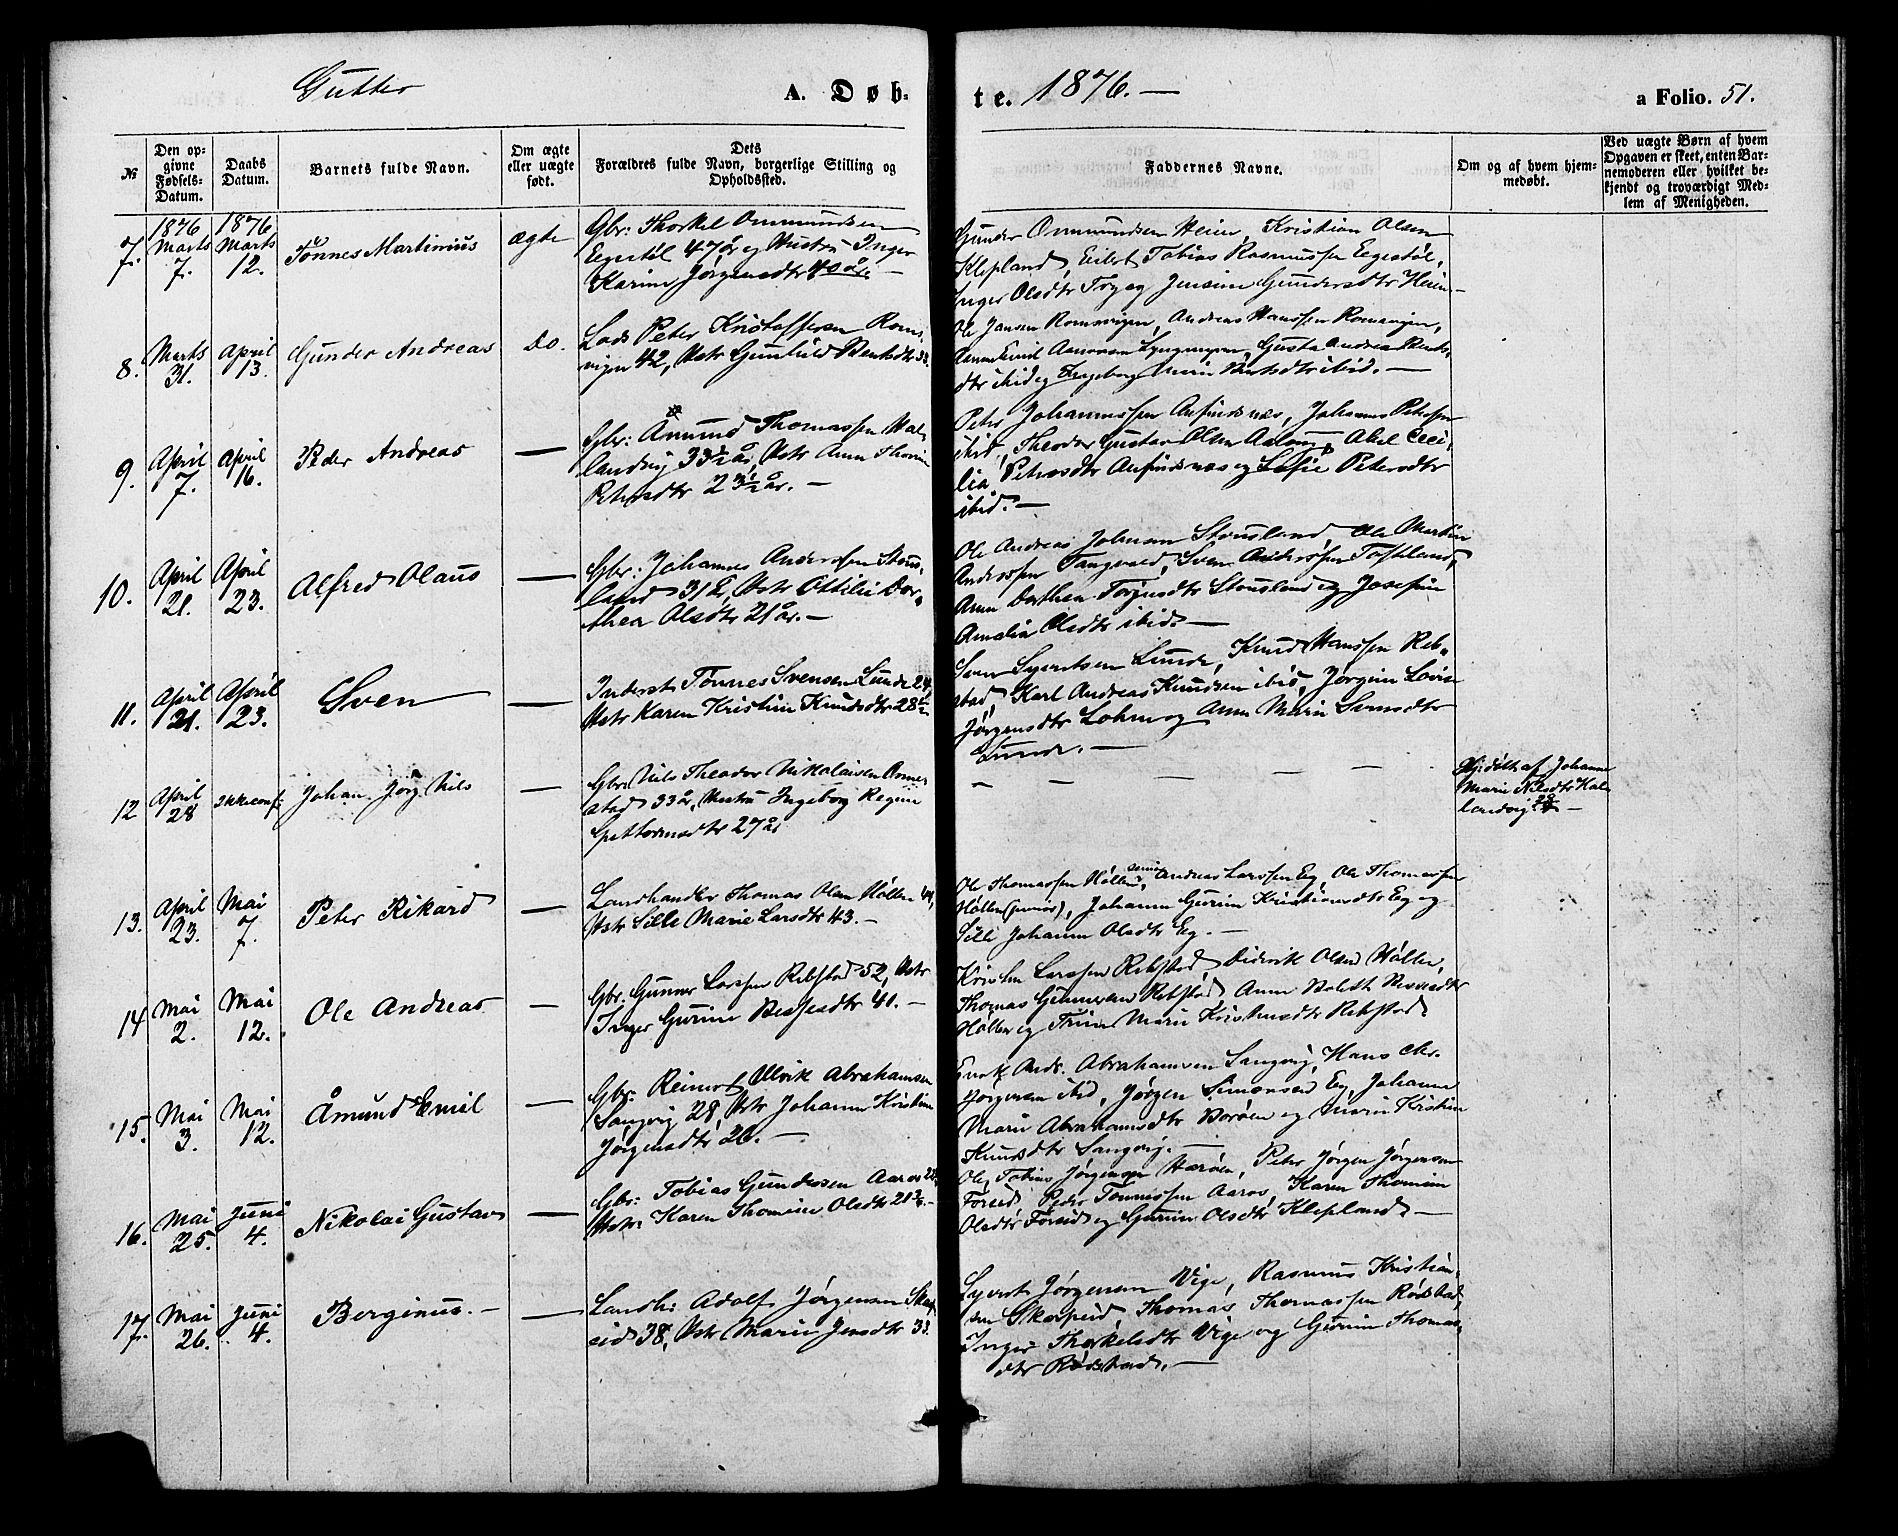 Gutter
A. Døb-
te. 1876. —
a Folio. 51.
№
Den op-
givne
Fødsels-
Datum.
Daabs
Datum.
Barnets fulde Navn.
Om ægte
eller uægte
født.
Dets
Forældres fulde Navn, borgerlige Stilling og
Opholdssted.
Faddernes Navne.
Om og af hvem hjem-
medøbt.
Ved uægte Børn af hvem
Opgaven er skeet, enten Bar-
nemoderen eller hvilket be-
kjendt og troværdigt Med-
lem af Menigheden.
7.
1876
Marts
7.
1876
Marts
12.
Tönnes Martinius
ægte
Gbr: Thorkel Ommundsen
Egestöl 47 år og Hustru Inger
Karine Jørgensdtr 40 år. —
Gunder Ommundsen Heien, Kristian Olsen
Klepland, Eilert Tobias Rasmussen Eegestöl,
Inger Olsdtr Try og Jensine Gundersdtr Heien —
8.
Marts
31.
April
13.
Gunder Andreas
do.
Lods Peter Kristoffersen Roms-
vigen 42, Hstr Gunhild Bentsdtr 33.
Ole Jansen Romsvigen, Andreas Hanssen Romsvigen,
Gusta Andrea Bents-
dtr ibid og Ingeborg Marie Bentsdtr ibid. —
9.
April
7.
April
16.
Peder Andreas
—
Gbr: Åmund Thomassen Hal-
landvig 33½ år, Hstr Anne Thomine
Petersdtr 23½ år. —
Peter Johannessen Aufindsnæs, Johannes Petersen
ibid, Theodor Gustav Olsen Aalong, Abel Ceci-
lia Petersdtr Aufindsnæs og Sofie Petersdtr
ibid. —
10.
April
21.
April
23.
Alfred Olaus
—
Gbr: Johannes Anderssen Stous-
land 31½, Hstr Ottilie Dor-
thea Olsdtr 21 år. —
Ole Andreas Johnsen Stousland, Ole Martin
Anderssen Tangvald, Sven Anderssen Toftland,
Anne Dorthea Torjusdtr Stousland og Josefine
Amalia Olsdtr ibid. —
11.
April
21.
April
23.
Sven
—
Inderst Tönnes Svensen Lunde 24,
Hstr Karen Kristine Knudsdtr 28½
Sven Syvertsen Lunde, Knud Hanssen Reb-
stad, Karl Andreas Knudsen ibid, Jørgine Lovise
Jørgensdtr Lohne og Anne Marie Svensdtr
Lunde. —
12
April
28
Ikke conf.
Johan Jörg Nils
—
Gbr: Nils Theodor Nikolaisen
stad 33 år, Hustru Ingeborg Regine
27 år
— — — — — —
Hj. døbt af Johanne
Marie Nilsdtr Hal-
landvig —
13.
April
23.
Mai
7.
Peter Rikard
—
Landhandler Thomas Olsen Höllen 44,
Hstr Sille Marie Larsdtr 43. —
Ole Thomassen Höllen senior, Andreas Larssen Eg, Ole Thomassen
Höllen (junior), Johanne Gurine Kristiansdtr Eg og
Sille Johanne Olsdtr Eg. —
14
Mai
2.
Mai
12.
Ole Andreas
—
Gbr: Gunner Larssen Rebstad 52, Hstr
Inger Gurine 41. —
Kristen Larssen Rebstad, Didrik Olsen Höllen,
Thomas Gunnersen Rebstad, Anne
Höllen og Trine Marie Kristensdtr Rebstad
15.
Mai
3.
Mai
12.
Åmund Emil
—
Gbr: Reinert Ulrik Abrahamsen
Langvig 28, Hstr Johanne Kristine
Jørgensdtr 20. —
Enok Andr. Abrahamsen Langvig, Hans Chr.
Jörgensen ibid, Jörgen Simonsen Eg, Johanne
Marie Abrahamsdtr Boröen og Marie Kristine
Knudsdtr Langvig. —
16.
Mai
25.
Juni
4.
Nikolai Gustav
—
Gbr: Tobias Gundersen Aaros
Hstr: Karen Thomine Olsdtr —
Ole Tobias Jørgensen Harøen, Peter Jørgen Jørgensen
Föreid, Peder Tönnessen Aaros, Karen Thomine
Olsdtr Föreid og Gurine Olsdtr Klepland. —
17.
Mai
26.
Juni
4.
Berginus. —
—
Landh: Adolf Jørgensen Skarp-
eid 38, Hstr Marie Jensdtr 33.
Syvert Jørgensen Vige, Rasmus Kristian-
sen Skarpeid, Thomas Thomassen Rødstad,
Inger Thorkelsdtr Vige og Gurine Thomas-
dtr Rødstad. —